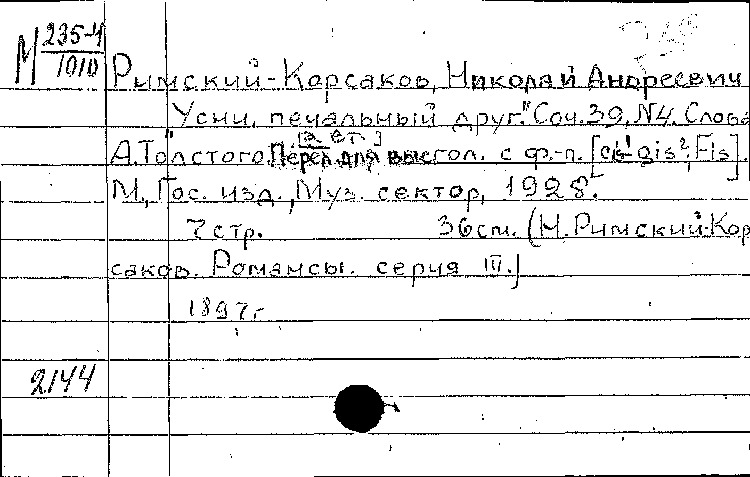 М 235-4
1010
Римский-Корсаков, Николай Андреевич
"Усни, печальный друг." Соч. 39, N4. Слова
[2 ет.]
А. Толстого. Перел. для выс гол. с ф.-п. [cis¹-gis², Fis].
М., Гос. изд., Муз. сектор, 1928.
7 стр. 36 см. (Н. Римский-Кор
саков. Романсы. серия III.)
1897 г.
2144